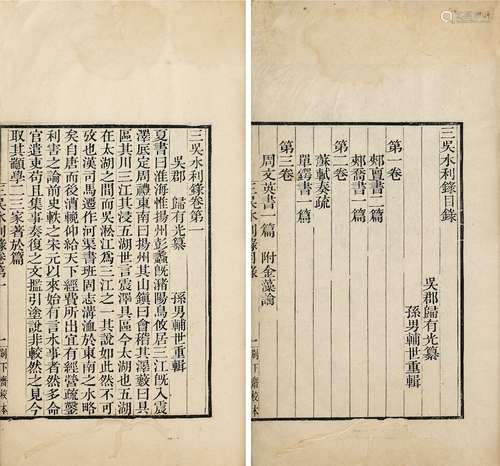 三吳水利錄目錄
吳郡歸有光纂
孫男輔世重輯
第一卷
郟亶書二篇
郟喬書一篇
第二卷
蘇軾奏疏
單鍔書一篇
第三卷
周文英書一篇 附金藻論
三吳水利錄目錄 一 別下齋校本
三吳水利錄卷第一
吳郡 歸有光纂 孫男輔世重輯
夏書曰淮海惟揚州彭蠡既瀦陽鳥攸居三江既入震
澤底定周禮東南曰揚州其山鎮曰會稽其澤藪曰具
區其川三江其浸五湖世言震澤具區今太湖也五湖
在太湖之間而吳淞江爲三江之一其說如此然不可
攷也漢司馬遷作河渠書班固志溝洫於東南之水略
矣自唐而後漕輓仰給天下經費所出宜有經營疏鑿
利害之論前史軼之宋元以來始有言水事者然多命
官遣吏苟且集事奏復之文擥引塗說非較然之見今
取其顓學二三家著於篇
三吳水利錄卷第一 一 別下齋校本